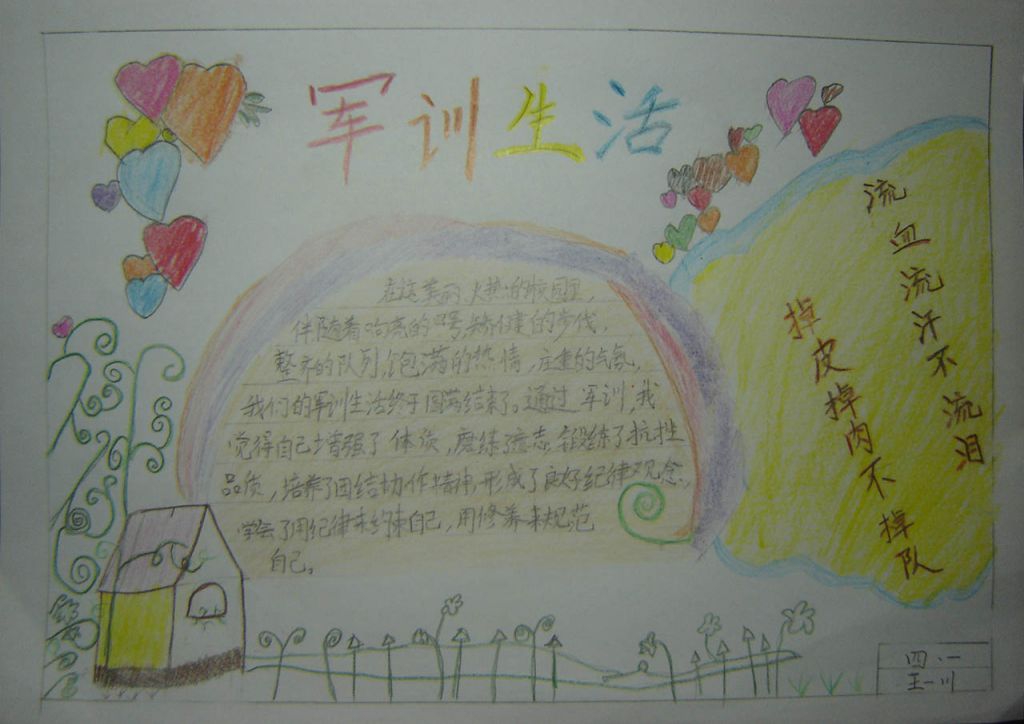 军训生活
在这美丽火热的校园里，
伴随着嘹亮的口号，矫健的步伐，
整齐的队列，饱满的热情，庄重的气氛，
我们的军训生活终于圆满结束了。通过军训，我
觉得自己增强了体质，磨练了意志，锻练了抗挫
品质，培养了团结协作精神，形成了良好纪律观念，
学会了用纪律来约束自己，用修养来规范
自己。
流血流汗不流泪
掉皮掉肉不掉队
四.一
王一川